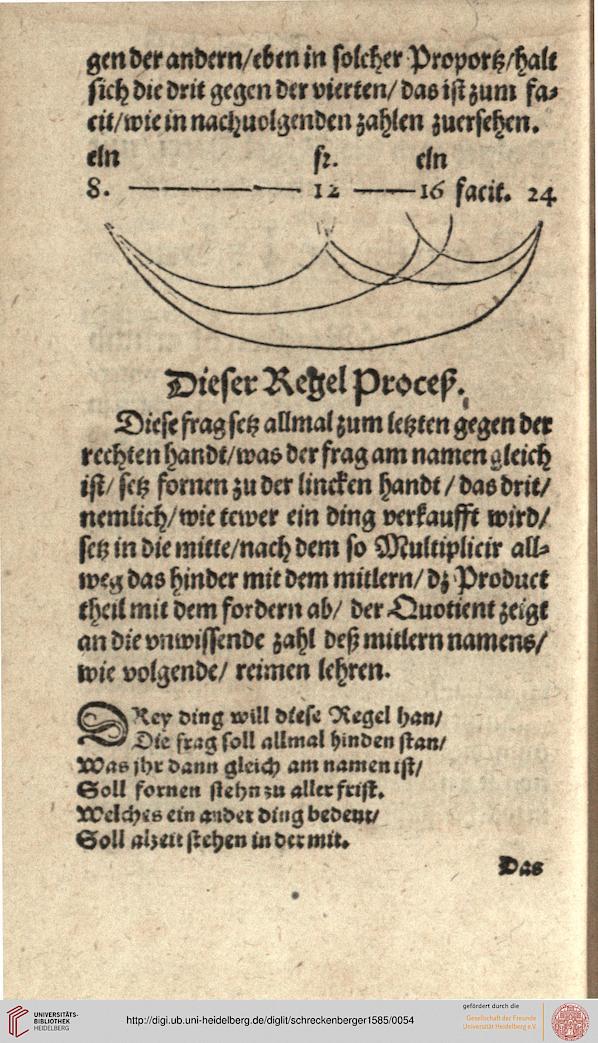 gen der andern/eben in solcher Proportz/halt
sich die drit gegen der vierten/ das ist zum fa⸗
cit/wie in nachuolgenden zahlen zuersehen.
eln fr. eln
8. 12 16 facit. 24
Dieser Regel Proceß.
Diese frag setz allmal zum letzten gegen der
rechten handt/was der frag am namen gleich
ist/ setz fornen zu der lincken handt / das drit/
nemlich/wie tewer ein ding verkaufft wird/
setz in die mitte/nach dem so Multiplicir all⸗
weg das hinder mit dem mitlern/ dz Product
theil mit dem fordern ab/ der Quotient zeigt
an die vnwissende zahl deß mitlern namens/
wie volgende/ reimen lehren.
DRey ding will diese Regel han/
Die frag soll allmal hinden stan/
Was jhr dann gleich am namen ist/
Soll fornen stehn zu aller frist.
Welches ein ander ding bedeut/
Soll alzeit stehen in der mit.
Das
UNIVERSITÄTS-
BIBLIOTHEK
HEIDELBERG
http://digi.ub.uni-heidelberg.de/diglit/schreckenberger1585/0054
gefördert durch die
Gesellschaft der Freunde
Universität Heidelberg e.V.